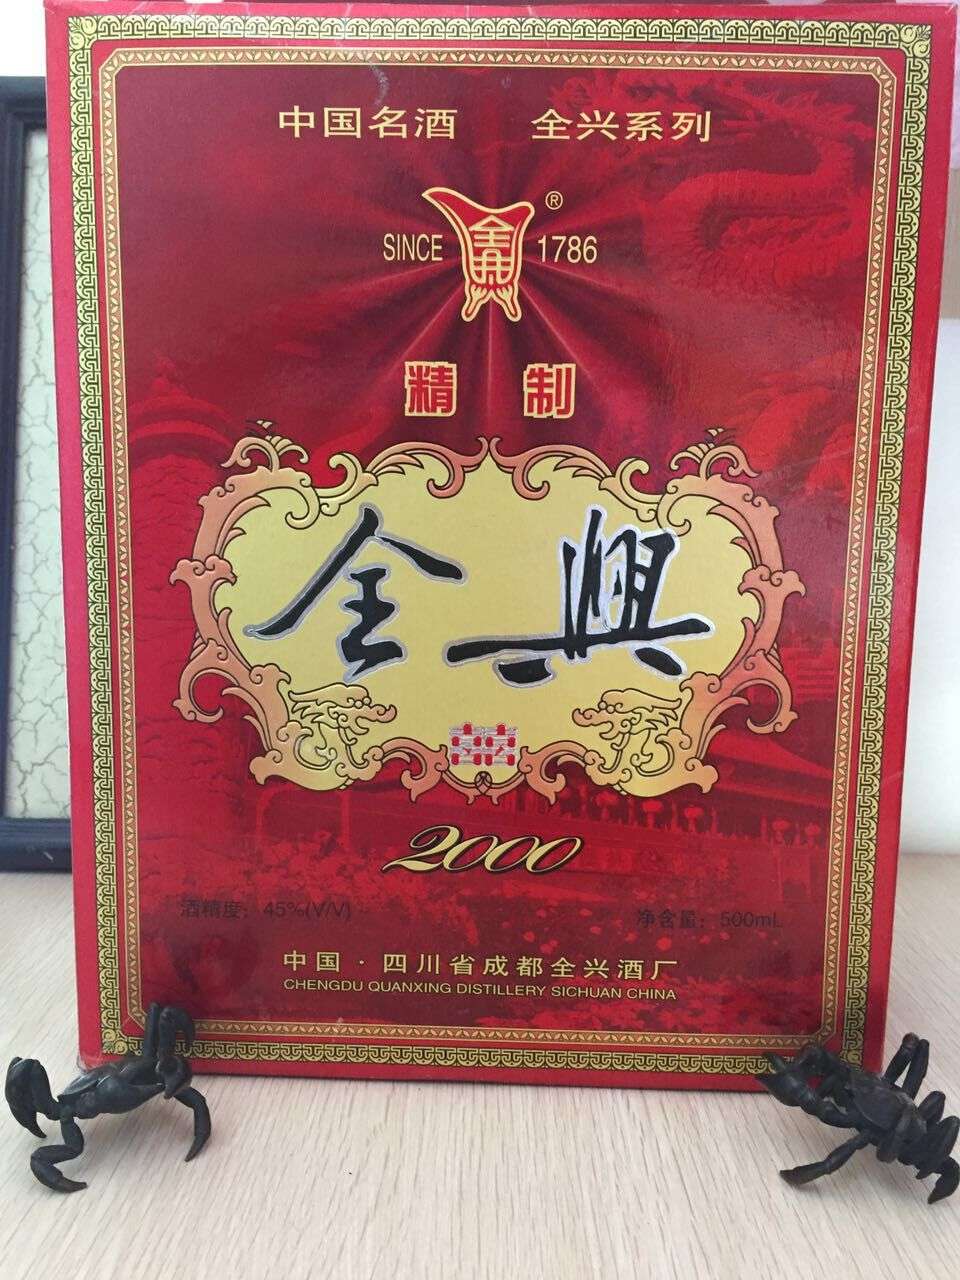 中国名酒 全兴系列
全興
®
SINCE 1786
精制
全興
囍
2000
酒精度：45%(V/V)
净含量：500mL
中国·四川省成都全兴酒厂
CHENGDU QUANXING DISTILLERY SICHUAN CHINA